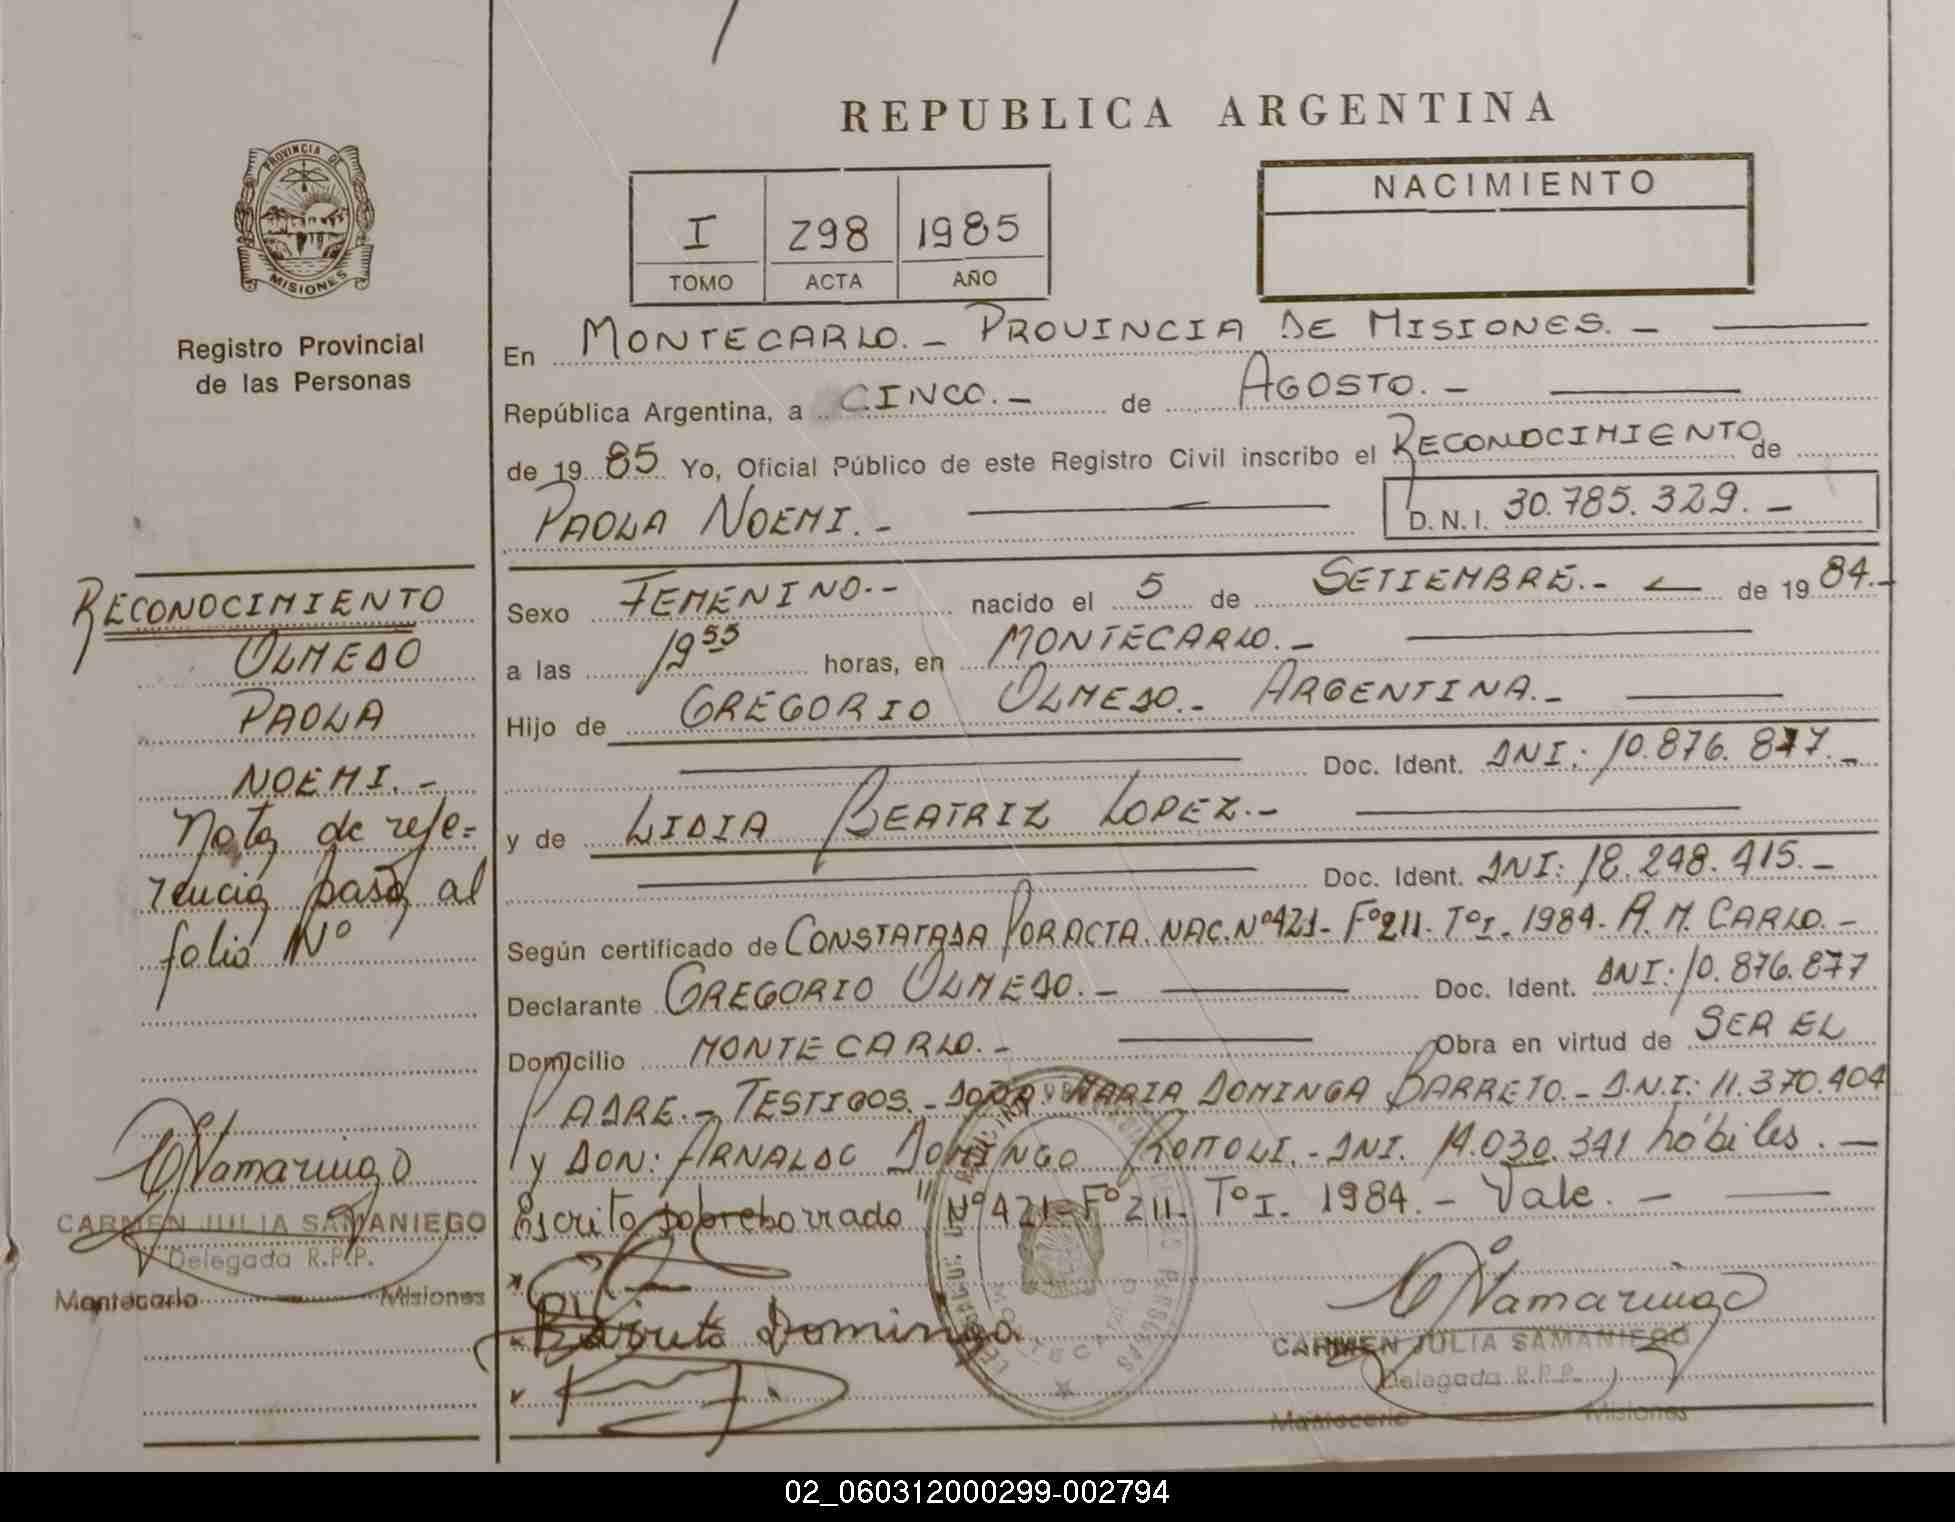 REPUBLICA ARGENTINA
PROVINCIA DE
MISIONES
Registro Provincial
de las Personas
I 298 1985
TOMO ACTA AÑO
NACIMIENTO
En MONTECARLO.- PROVINCIA DE MISIONES.-
República Argentina, a CINCO.- de AGOSTO.-
de 1985 Yo, Oficial Público de este Registro Civil inscribo el RECONOCIMIENTO de
PAOLA NOEMI.- D.N.I. 30.785.329.-
Sexo FEMENINO.- nacido el 5 de SETIEMBRE.- de 1984.-
a las 19 55 horas, en MONTECARLO.-
Hijo de GREGORIO OLMEDO.- ARGENTINA.-
Doc. Ident. DNI: 10.876.877.-
y de LIDIA BEATRIZ LOPEZ.-
Doc. Ident. DNI: 18.248.415.-
Según certificado de CONSTATADA POR ACTA NAC. Nº421- Fº211- TºI- 1984- R. M. CARLO.-
Declarante GREGORIO OLMEDO.- Doc. Ident. DNI: 10.876.877
Domicilio MONTECARLO.- Obra en virtud de SER EL
PADRE.- TESTIGOS.- DOÑA: MARIA DOMINGA BARRETO.- D.N.I: 11.370.404
y DON: ARNALDO DOMINGO ROTTOLI.- DNI. 14.030.341 hábiles.-
Escrito sobreborrado "Nº421-Fº211- TºI- 1984.- Vale.-
Barreto Dominga
CARMEN JULIA SAMANIEGO
Delegada R.P.P.
Montecarlo Misiones
RECONOCIMIENTO
OLMEDO
PAOLA
NOEMI.-
Nota de refe=
rencia pasa al
folio Nº
CARMEN JULIA SAMANIEGO
Delegada R.P.P.
Montecarlo Misiones
MONTECARLO
02_060312000299-002794